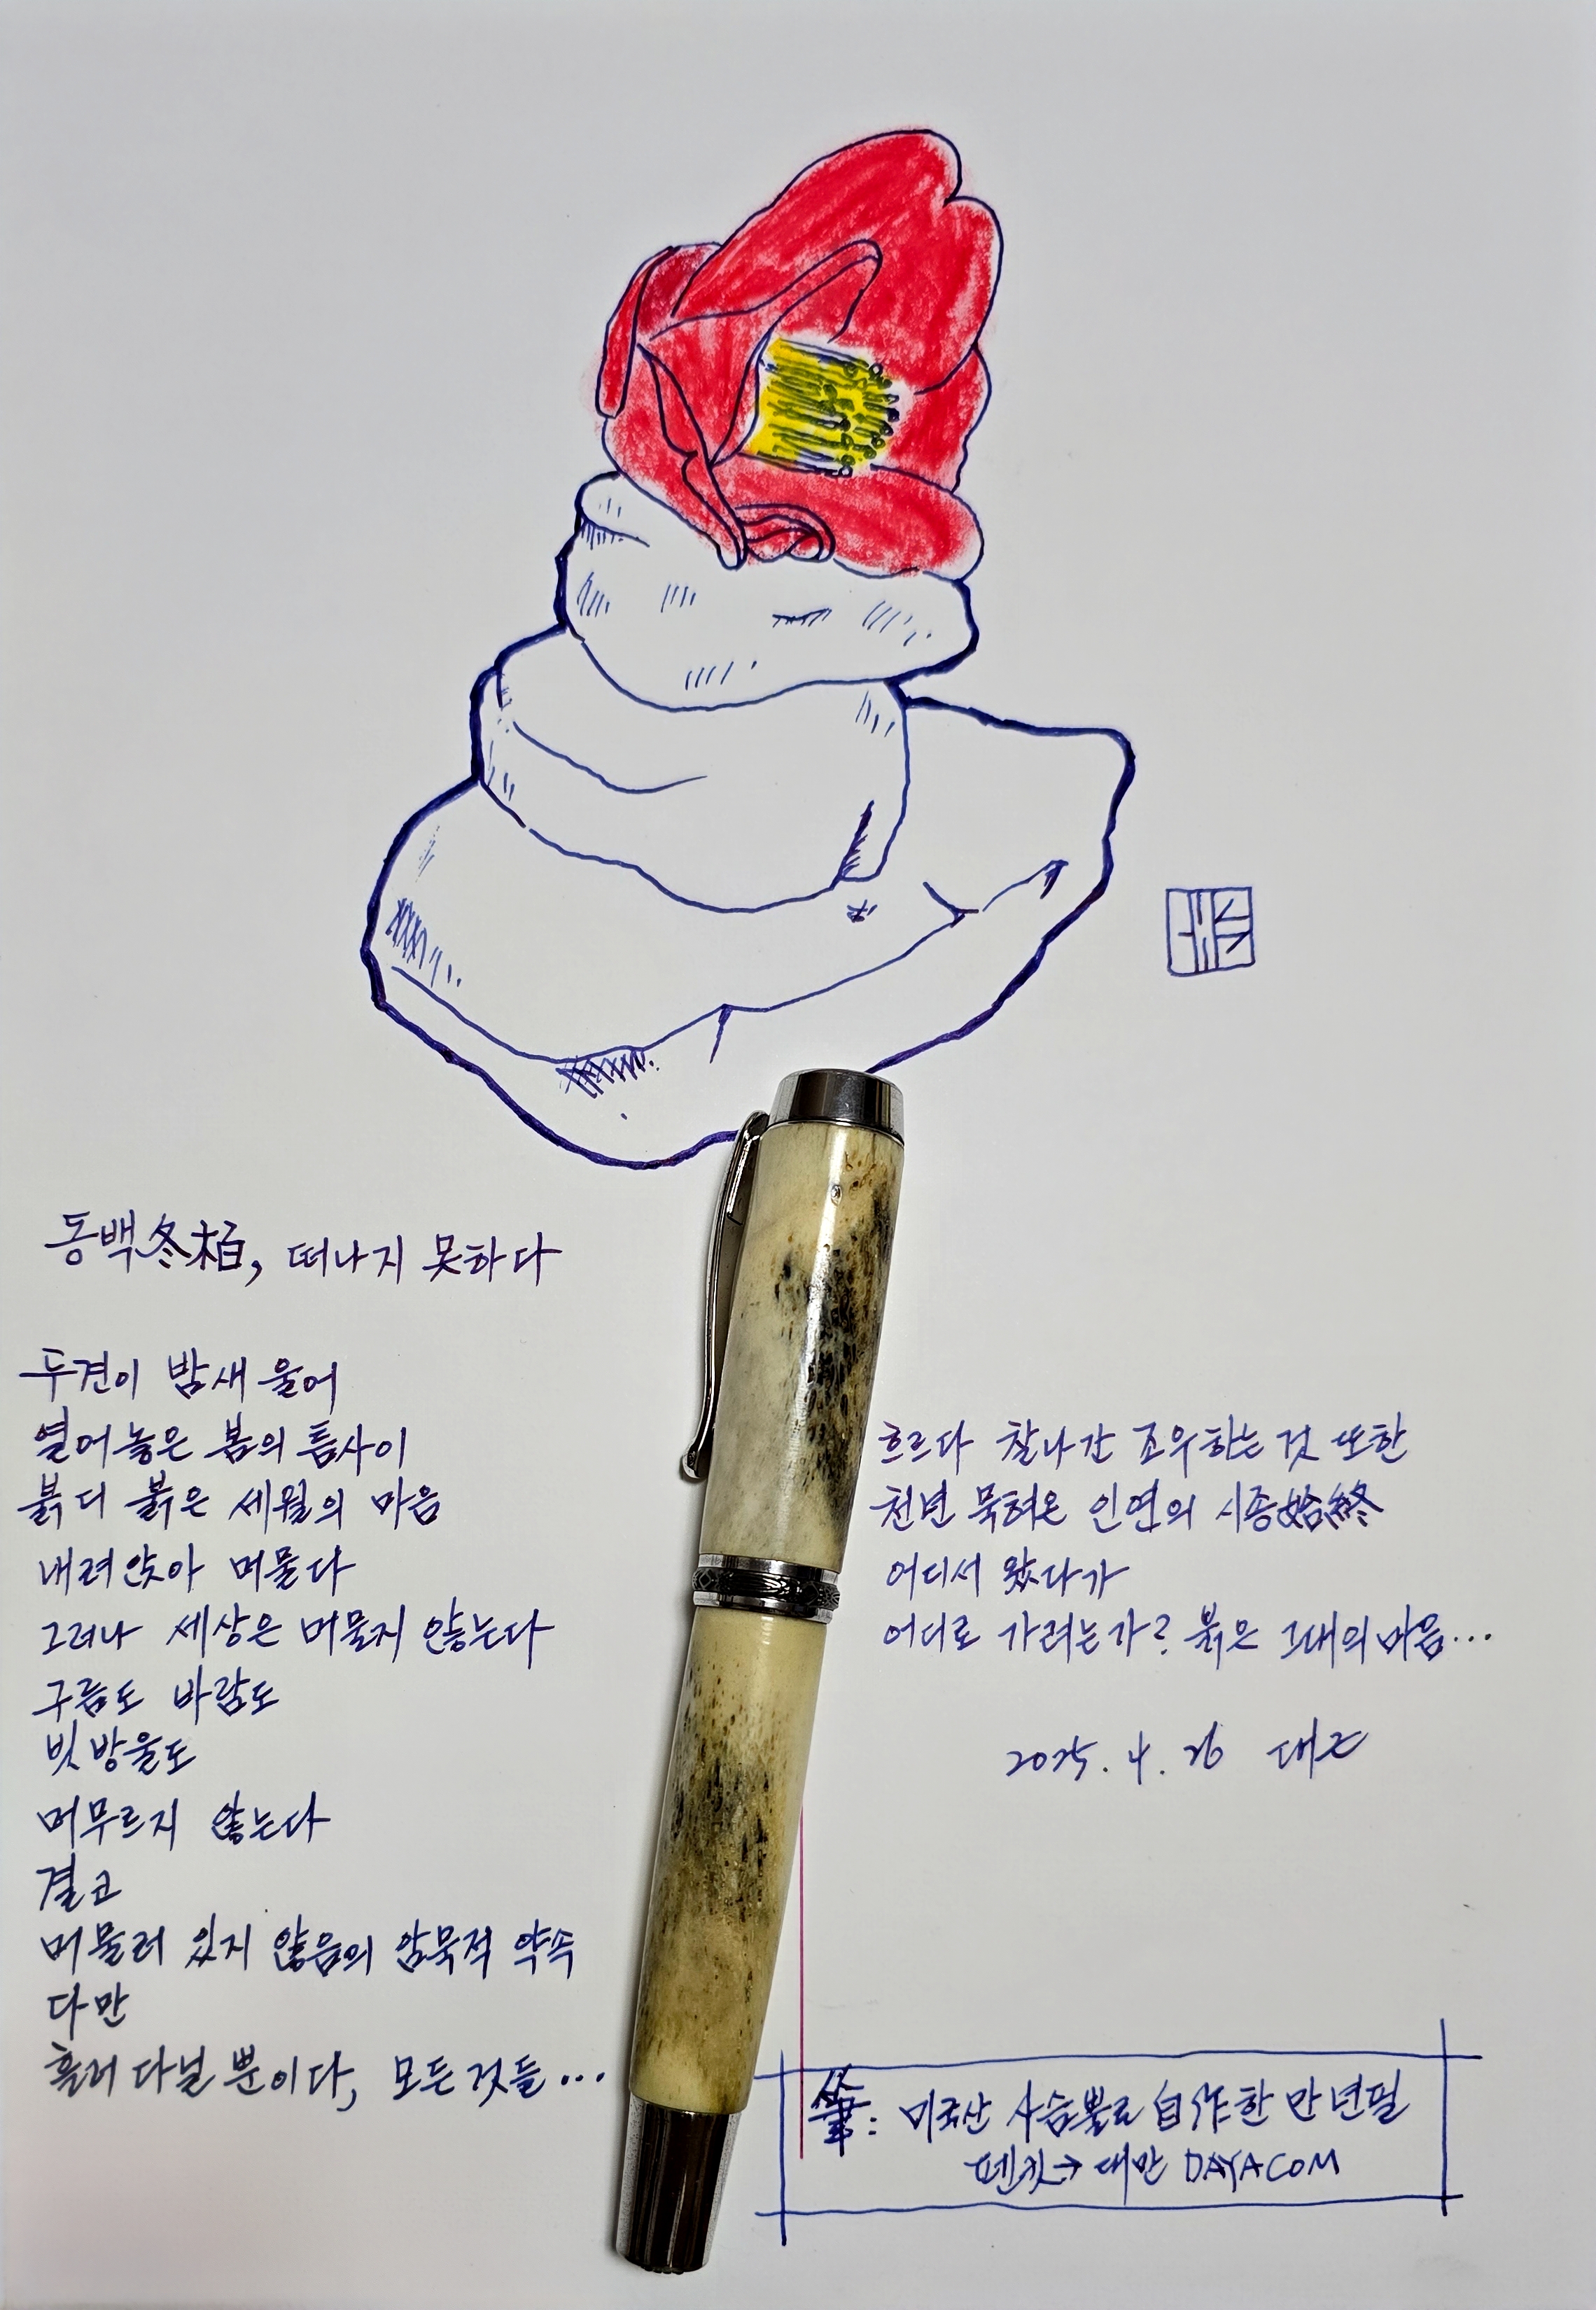 동백冬栢, 떠나지 못하다
두견이 밤새 울어
열어놓은 봄의 틈사이
붉디 붉은 세월의 마음
내려앉아 머물다
그러나 세상은 머물지 않는다
구름도 바람도
빗방울도
머무르지 않는다
결코
머물러 있지 않음의 암묵적 약속
다만
흘러 다닐 뿐이다, 모든것들...
흐르다 찰나간 조우하는 것 또한
천년 묵혀온 인연의 시종始終
어디서 왔다가
어디로 가려는가? 붉은 그대의 마음...
2025. 4. 26
筆: 미국산 사슴뿔로 自作한 만년필
펜킷→ 대만 DAYACOM